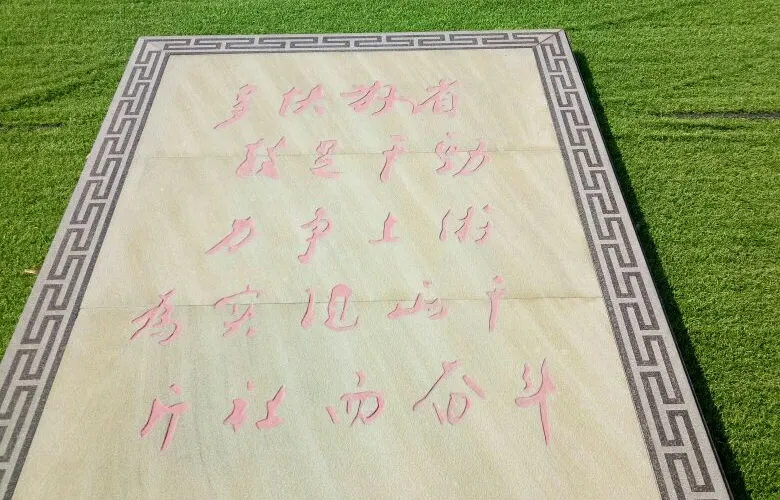 多快好省
鼓足干劲
力争上游
为实现四个
厂社而奋斗